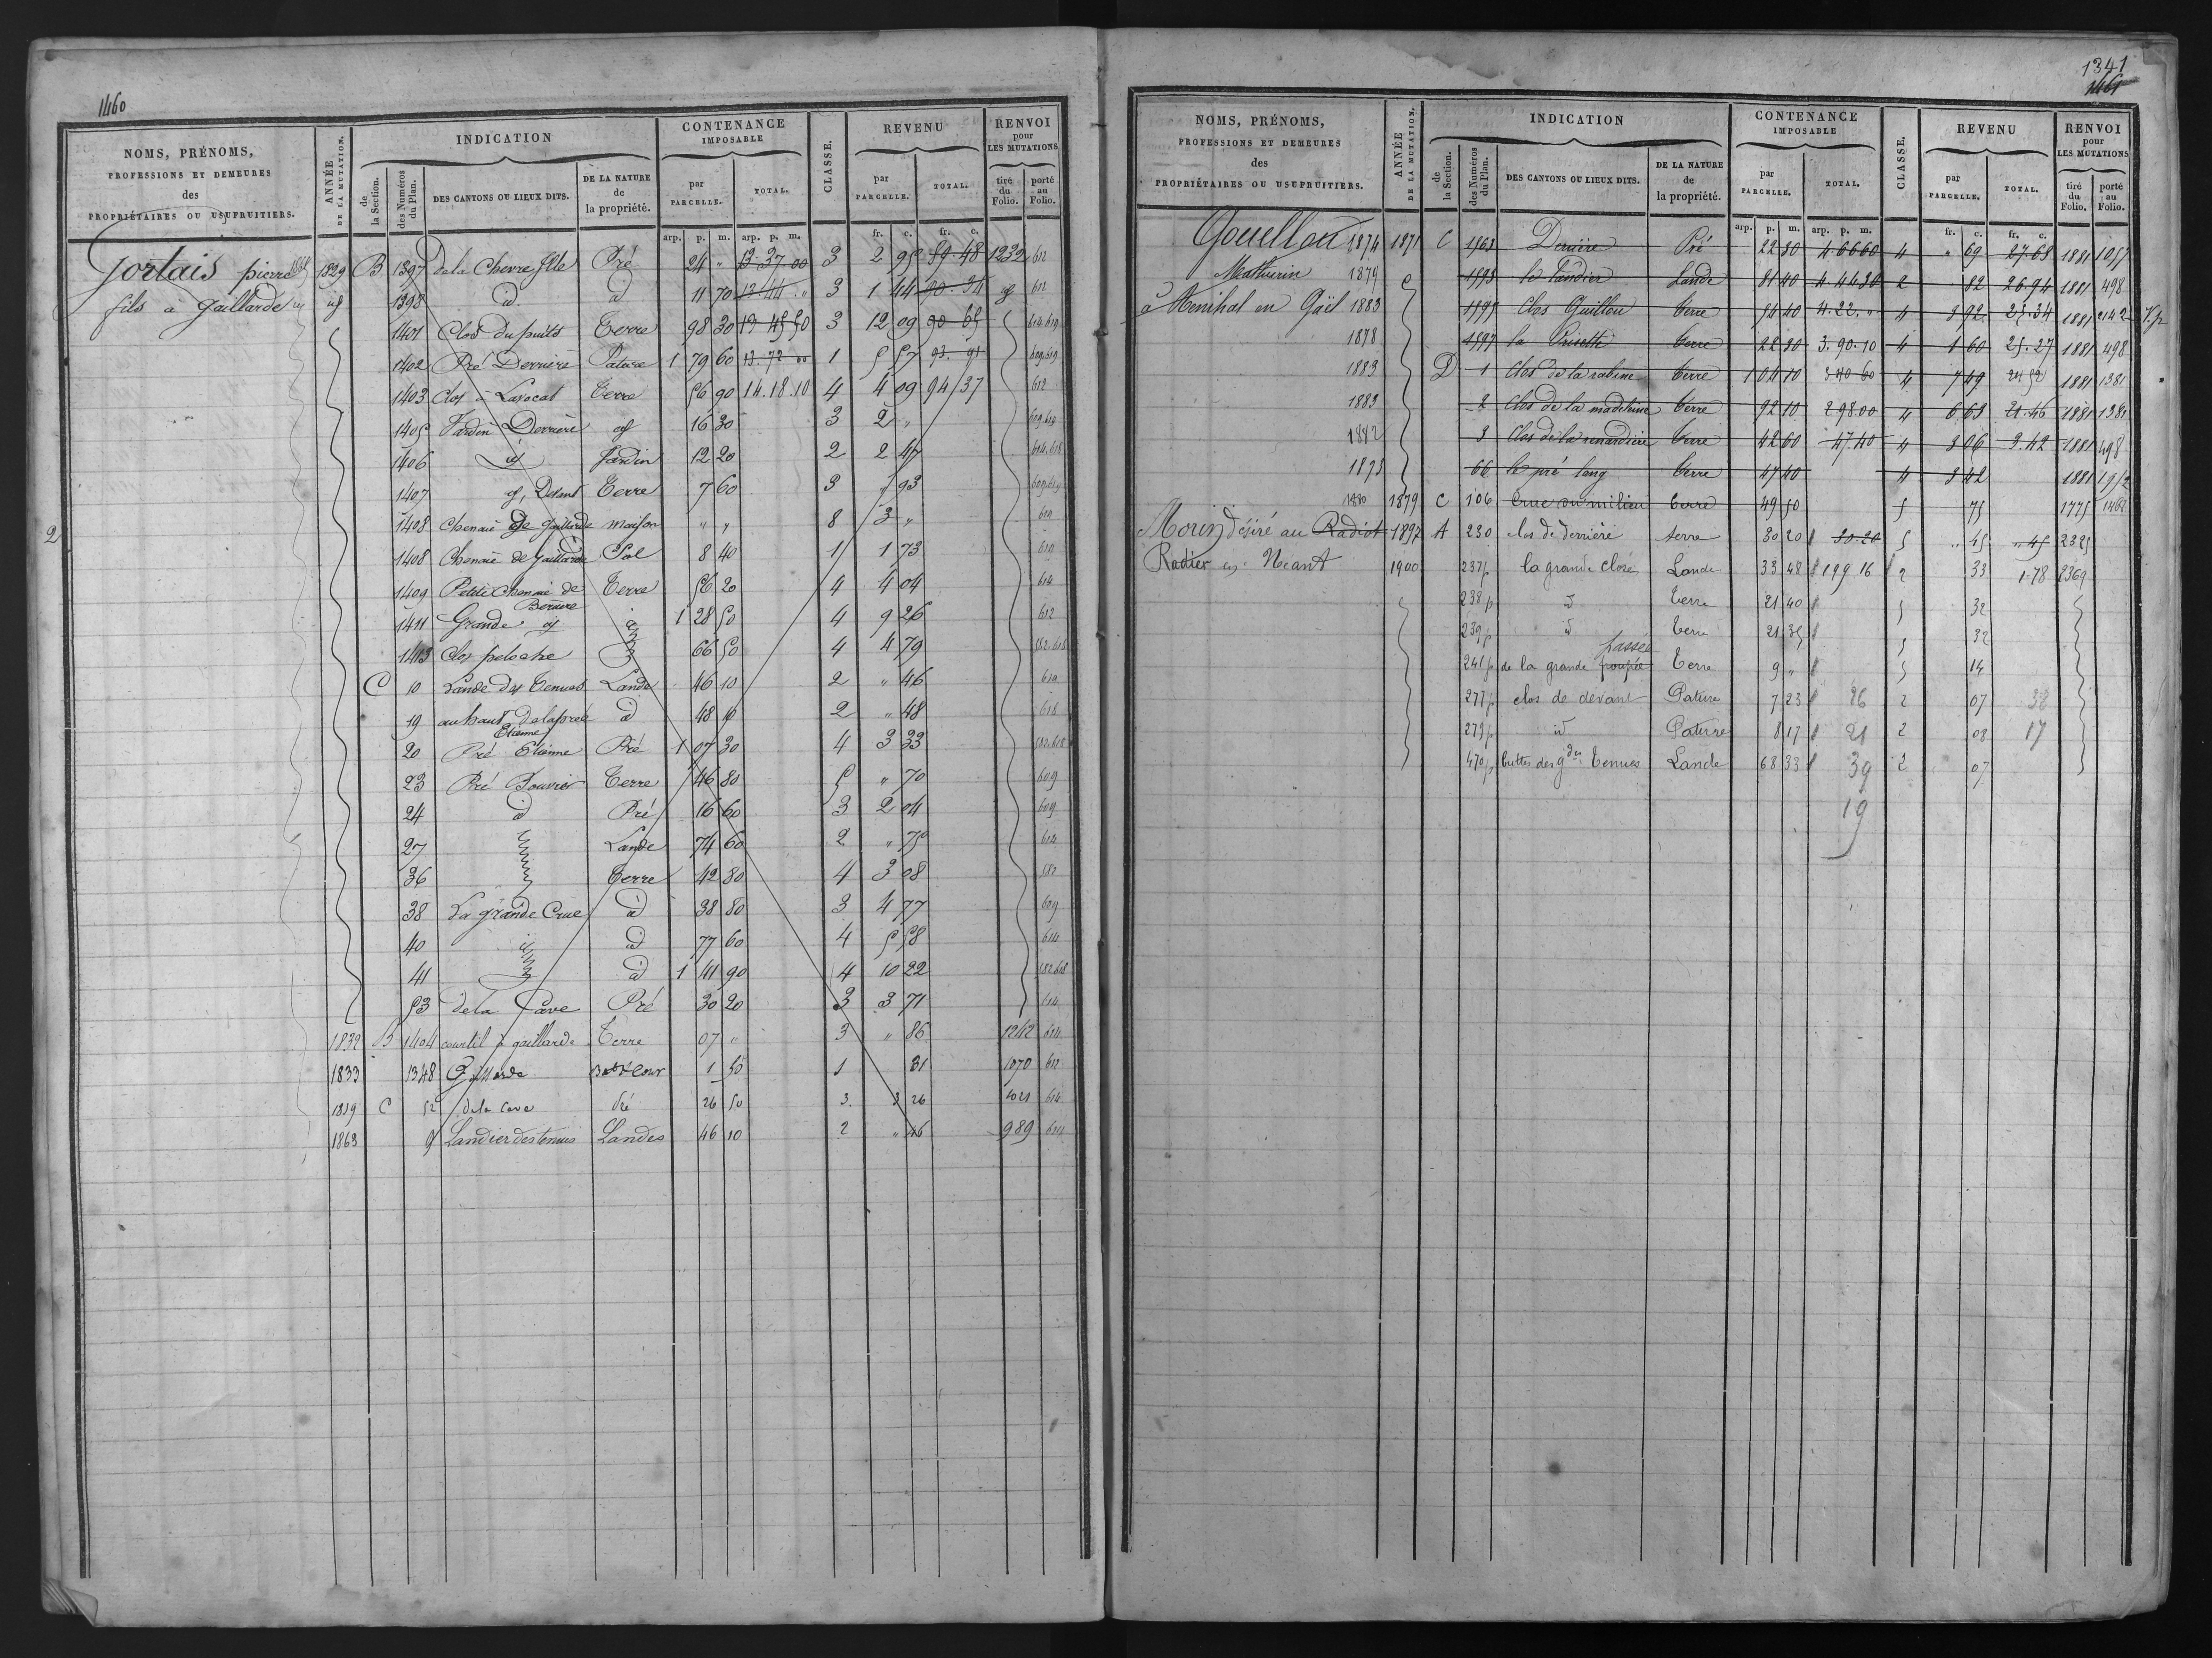 1460
NOMS, PRÉNOMS,
PROFESSIONS ET DEMEURES
des
PROPRIÉTAIRES OU USUFRUITIERS.
ANNÉE
DE LA MUTATION.
INDICATION
de
la Section.
des Numéros
du Plan.
DES CANTONS OU LIEUX DITS.
DE LA NATURE
de
la propriété.
CONTENANCE
IMPOSABLE
par
PARCELLE.
TOTAL.
CLASSE.
REVENU
par
PARCELLE.
TOTAL.
RENVOI
pour
LES MUTATIONS.
tiré
du
Folio.
porté
au
Folio.
arp. p. m. arp. p. m. fr. c. fr. c.
Gortais pierre 1829 B 1397 de la Chevre Pré 24 " 13 37 00 3 2 95 89 48 1232 612
fils à Gaillarde 1398 id 11 70 13 44 " 3 1 44 90 34 612
1401 Clos du puits Terre 98 30 13 45 50 3 12 09 90 65
1402 Pré Derriere Pature 1 79 60 13 72 00 1 5 57 609.619
1403 Clos à Lavocat Terre 56 90 14.18.10 4 4 09 94 37 612
1405 Jardin Derriere 16 30 3 2 "
1406 Jardin 12 20 2 2 614.618
1407 Devant Terre 7 60 3 " 93
1408 Chenaie de Gaillarde maison " " 8 3 "
1408 Chenaie de Gaillarde Sol 8 40 1 1 73
1409 Petite Chenaie de Derriere Terre 56 20 4 4 04 614
1411 Grande 1 28 50 4 9 26 612
1413 Clos 66 50 4 4 79
C 10 Lande des Tenues Lande 46 10 2 " 46
19 au haut de la pree Etienne id 48 10 2 " 48 618
20 Pré Etienne Pré 1 07 30 4 3 33
23 Pré Bouvier Terre 46 80 5 " 70 609
24 id Pré 16 60 3 2 04 609
27 Lande 74 60 2 " 75 614
36 Terre 42 80 4 3 08
38 La grande Crue id 38 80 3 4 77 609
40 id 77 60 4 5 58 614
41 id 1 41 90 4 10 22
53 de la Cave Pré 30 20 3 3 71 614
1832 B 1404 courtil à gaillarde Terre 07 " 3 " 86 1242 614
1833 1348 1 50 1 81 1070 612
C 52 de la Cave Pré 26 50 3. 3 26 614
1863 9 Landier des tenues Landes 46 10 2 " 46 989 614
2
1341
1461
NOMS, PRÉNOMS,
PROFESSIONS ET DEMEURES
des
PROPRIÉTAIRES OU USUFRUITIERS.
ANNÉE
DE LA MUTATION.
INDICATION
de
la Section.
des Numéros
du Plan.
DES CANTONS OU LIEUX DITS.
DE LA NATURE
de
la propriété.
CONTENANCE
IMPOSABLE
par
PARCELLE.
TOTAL.
CLASSE.
REVENU
par
PARCELLE.
TOTAL.
RENVOI
pour
LES MUTATIONS
tiré
du
Folio.
porté
au
Folio.
arp. p. m. arp. p. m. fr. c. fr. c.
Gouellou 1874 1871 C 1568 Derriere Pré 22 80 4 66 60 4 " 69 27.68 1881 1057
Mathurin 1879 1593 le Landier Lande 81 40 4 44 30 2 82 26.94 1881 498
à Menihal en Gaël 1883 1595 Clos Guillou terre 54 40 4.22. " 4 3 92 25.34 1881 2142 V.p
1878 1597 la Prisette terre 22 30 3.90.10 4 1 60 25.27 1881 498
1883 D 1 clos de la rabine terre 1 04 10 3 40 60 4 7 49 24 52 1881 1381
1883 2 clos de la madeleine terre 92 10 2 98.00 4 6 63 21.46 1881 1381
1882 3 clos de la renardiere terre 42 60 47.40 4 3 06 3.42 1881 498
66 le pré long terre 47 40 4 3 42 1881
1880 1879 C 106 Crue du milieu terre 49 50 5 75 1775 1462
Morin désiré au Radiot 1897 A 230 clos de derrière terre 30 20 30-20 5 " 45 " 45 2325
Radier en Néant 1900 237p la grande close Lande 33 48 199 16 2 33 1-78 2369
238p id Terre 21 40 5 32
239p id Terre 21 35 5 32
passée
241p de la grande poupée Terre 9 " 5 14
277p clos de devant Pature 7 23 26 2 07 38
279p id Pature 8 17 21 2 08 17
470p buttes des gdes tenues Lande 68 33 39 2 07
19